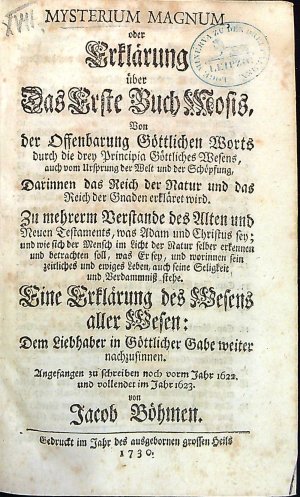 XVII.
MYSTERIUM MAGNUM,
oder
Erklärung
über
Das Erste Buch Mosis,
Von
der Offenbarung Göttlichen Worts
durch die drey Principia Göttliches Wesens,
auch vom Ursprung der Welt und der Schöpfung,
Darinnen das Reich der Natur und das
Reich der Gnaden erkläret wird.
Zu mehrerm Verstande des Alten und
Neuen Testaments, was Adam und Christus sey;
und wie sich der Mensch im Licht der Natur selber erkennen
und betrachten soll, was Er sey, und worinnen sein
zeitliches und ewiges Leben, auch seine Seligkeit
und Verdammniß stehe.
Eine Erklärung des Wesens
aller Wesen:
Dem Liebhaber in Göttlicher Gabe weiter
nachzusinnen.
Angefangen zu schreiben noch vorm Jahr 1622.
und vollendet im Jahr 1623.
von
Jacob Böhmen.
Gedruckt im Jahr des ausgebornen grossen Heils
1730.
LEIPZIG